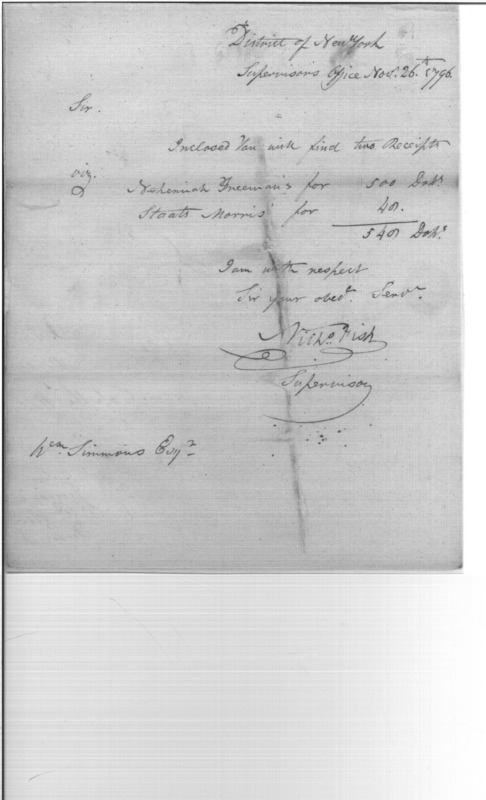 District of New York
Supervisors Office Nov.r 26.th 1796.
Sir.
Inclosed You will find two Receipts
viz. Nehemiah Freeman's for 500 Doll.s
Staats Morris' for 40.
540 Doll.s
I am with respect
Sir your obed.t Serv.t
Nich.s Fish
Supervisor
W.m Simmons Esq.r